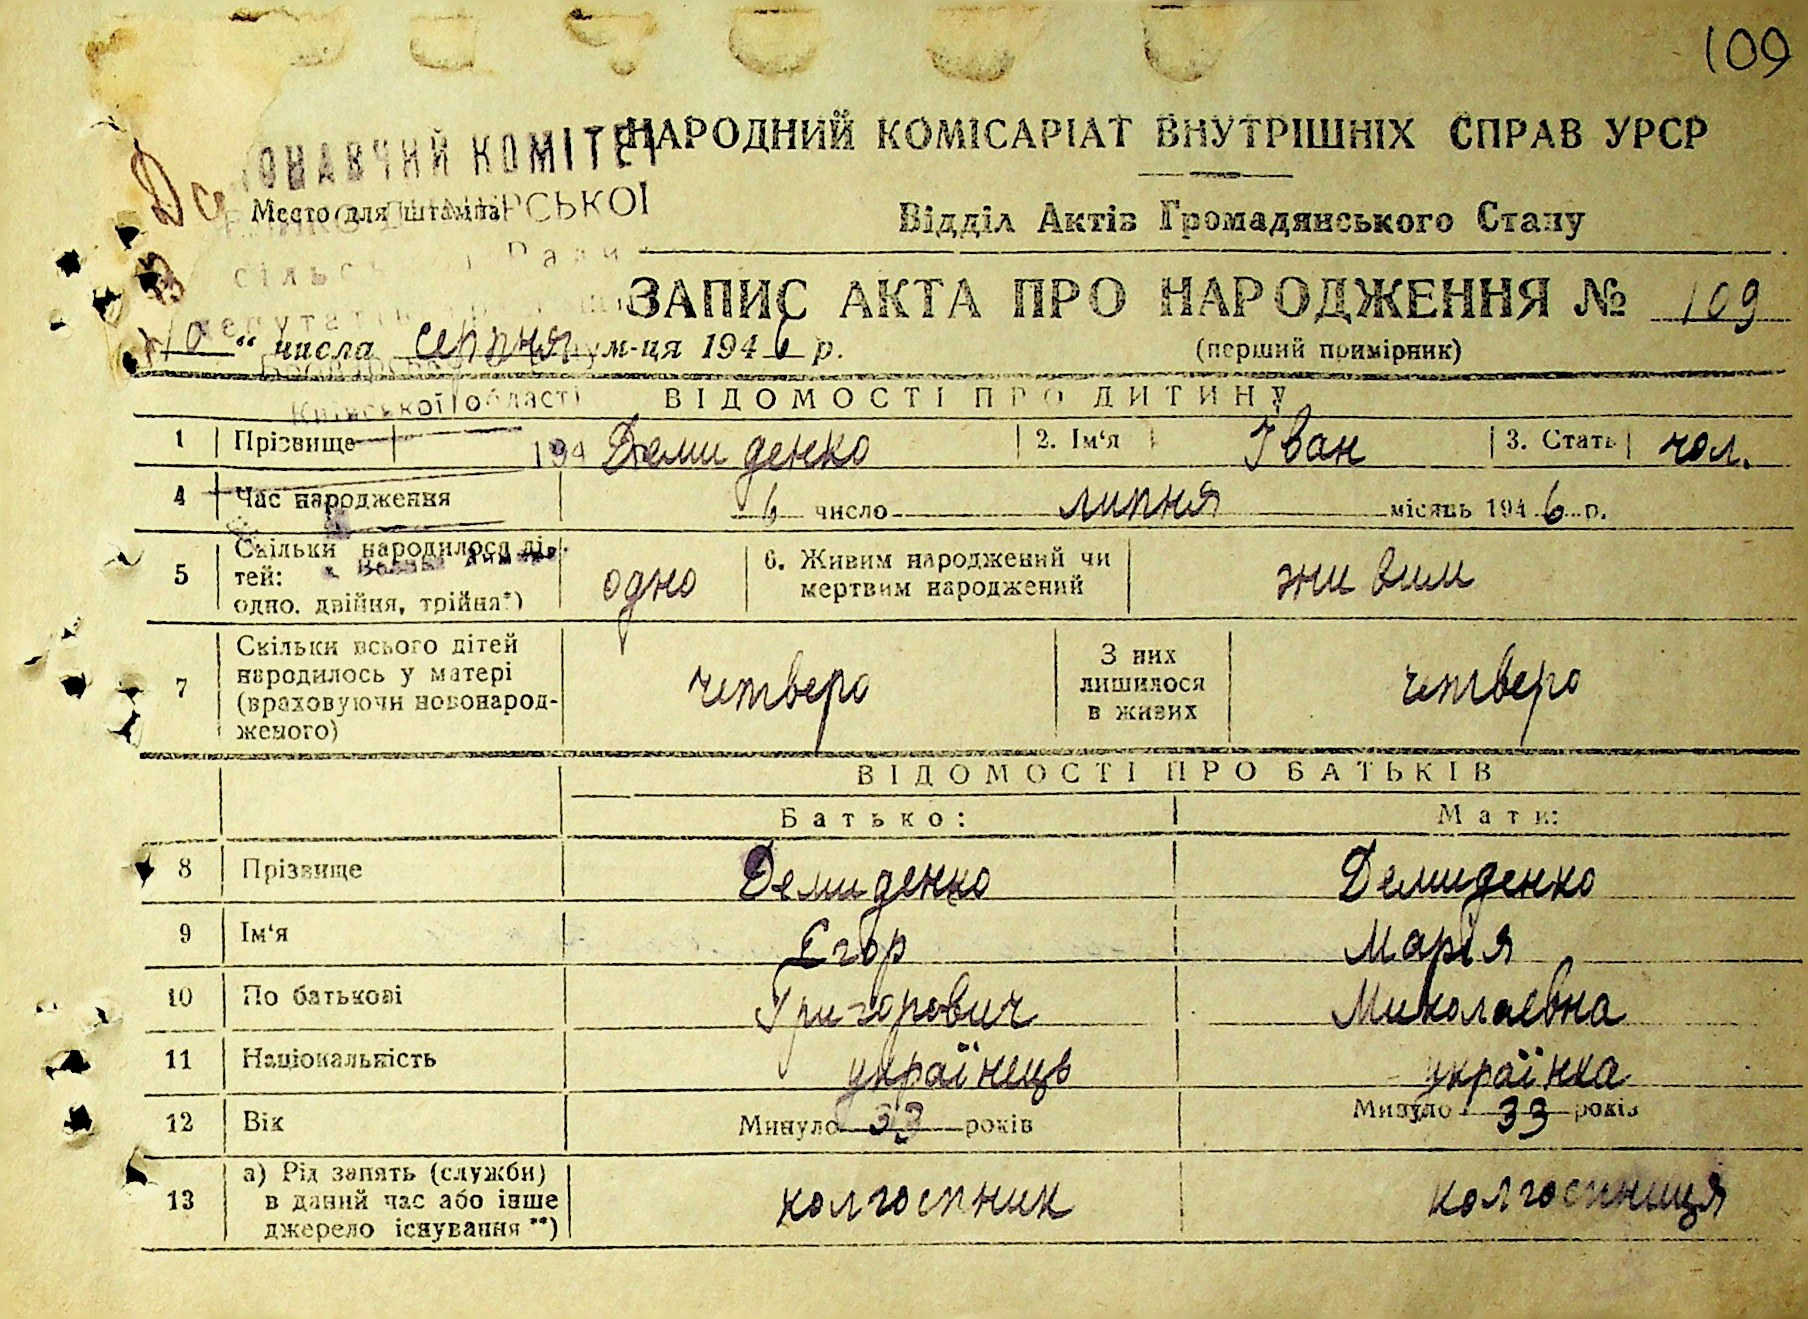 109
НАРОДНИЙ КОМІСАРІАТ ВНУТРІШНІХ СПРАВ УРСР
ОНАВЧИЙ КОМІТЕТ
Место для штампа
РСЬКОЇ
Відділ Актів Громадянського Стану
сільс Ради
ЗАПИС АКТА ПРО НАРОДЖЕННЯ № 109
депутатів
10 “ числа серпня м-ця 1946 р.
(перший примірник)
Київської області
ВІДОМОСТІ ПРО ДИТИНУ
1 Прізвище 194 Демиденко 2. Ім‘я Іван 3. Стать чол.
4 Час народження 6 число липня місяць 1946 р.
5 Скільки народилося дітей: одно, двійня, трійня*) одно 6. Живим народжений чи мертвим народжений живим
7 Скільки всього дітей народилось у матері (враховуючи новонародженого) четверо З них лишилося в живих четверо
ВІДОМОСТІ ПРО БАТЬКІВ
Батько: Мати:
8 Прізвище Демиденко Демиденко
9 Ім‘я Єгор Марія
10 По батькові Григорович Миколаєвна
11 Національність українець українка
12 Вік Минуло 33 років Минуло 33 років
13 а) Рід занять (служби) в даний час або інше джерело існування **) колгоспник колгоспниця